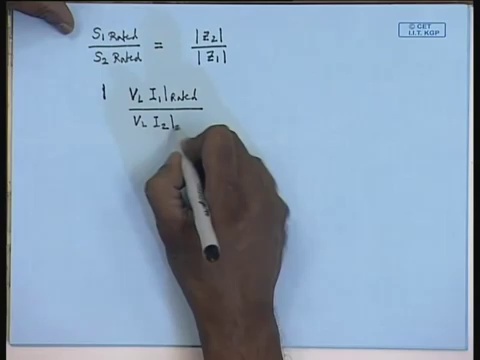 © CET
I.I.T. KGP
S₁ Rated / S₂ Rated = |Z₂| / |Z₁|
| V₂ I₁|Rated / V₂ I₂|